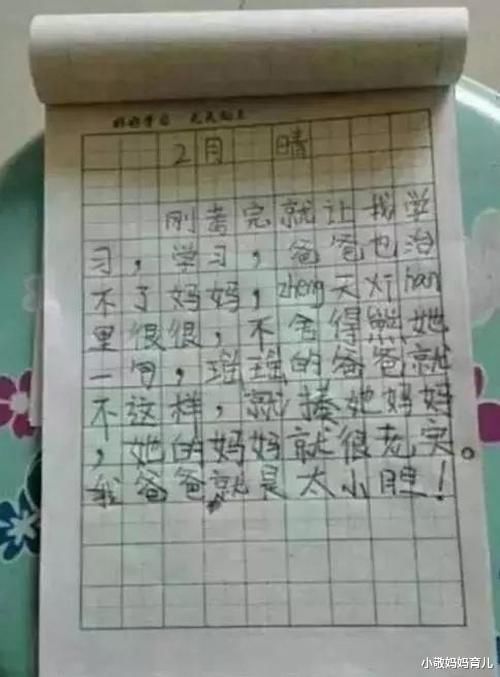 好好学习 天天向上
2月 晴
刚考完就让我学
习，学习，爸爸也治
不了妈妈，zheng天xi han
里很很，不舍得熊她
一句，瑶瑶的爸爸就
不这样，就揍她妈妈
，她的妈妈就很老实。
我爸爸就是太小胆！
小敬妈妈育儿